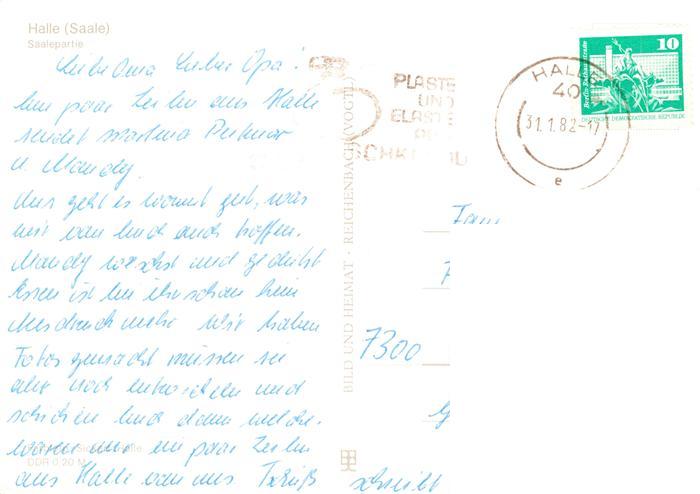 Halle (Saale)
Saalepartie
Liebe Oma Lieber Opa!
Ein paar Zeilen aus Halle
sendet Martina
u. Mandy.
Uns geht es soweit gut, was
wir von Euch auch hoffen.
Mandy wächst und gedeiht
Essen ist bei ihr schon kein
mehr Wir haben
Fotos gemacht müssen sie
aber noch entwickeln und
schicken Euch dann welche.
ein paar Zeilen
aus Halle von uns Tschüß
DDR 0,20 M
BILD UND HEIMAT · REICHENBACH (VOGTL)
PLASTE
UND
ELASTE
HALLE
40
31.1.82-17
e
10
DEUTSCHE DEMOKRATISCHE REPUBLIK
Fam
7300
schreibt